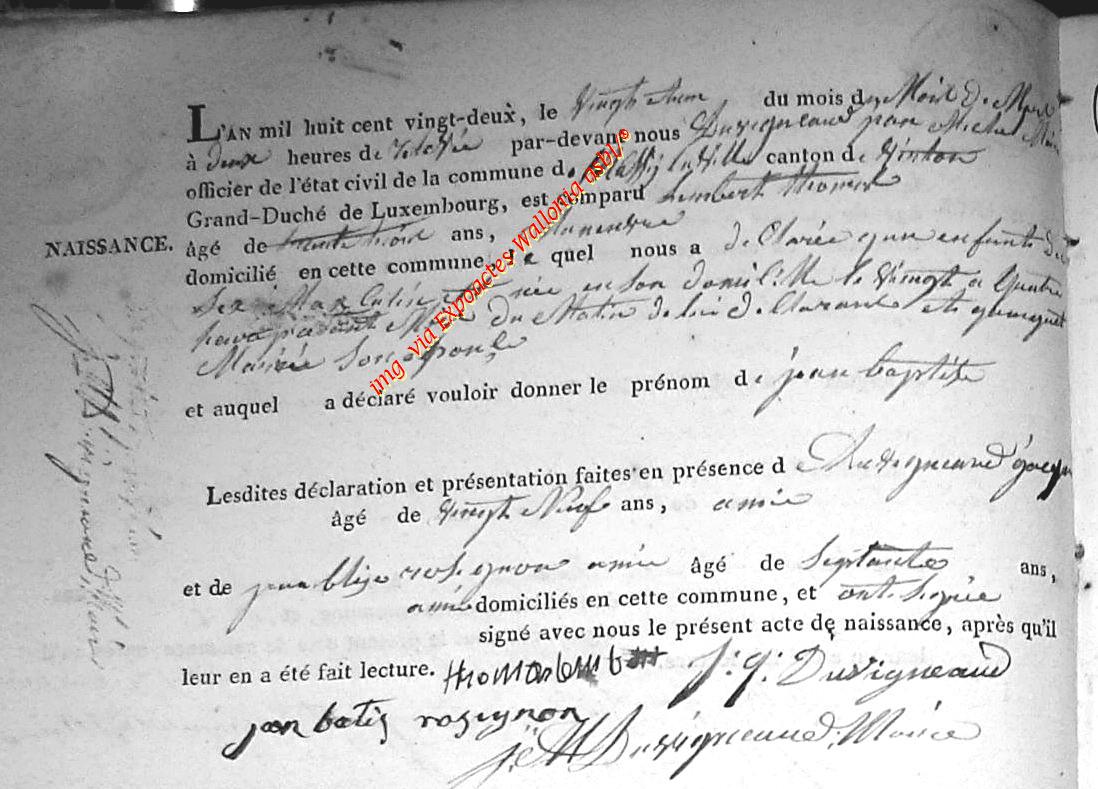 L'AN mil huit cent vingt-deux, le vingt du mois d Mois De
à deux heures de relevée par-devant nous Duvigneaud jean Michel
officier de l'état civil de la commune de canton de Virton
Grand-Duché de Luxembourg, est comparu Lambert thomas
NAISSANCE.
âgé de trente trois ans, Manoeuvre
domicilié en cette commune, le quel nous a declarée qun enfant de
Sex Masculin est née en son domicille le vingt a Quatre
du Matin de lui declarant et
Mariée Son Epouse
et auquel a déclaré vouloir donner le prénom de jean baptiste
Lesdites déclaration et présentation faites en présence d Duvigneaud
âgé de vingt Neuf ans, amie
et de jean rosignon amie âgé de Septante ans,
amie domiciliés en cette commune, et ont Signée
signé avec nous le présent acte de naissance, après qu'il
leur en a été fait lecture. thomas lambert J. J. Duvigneaud
jean batis rosignon
j. M Duvigneaud, Maire
img via Exponactes Wallonia asbl®